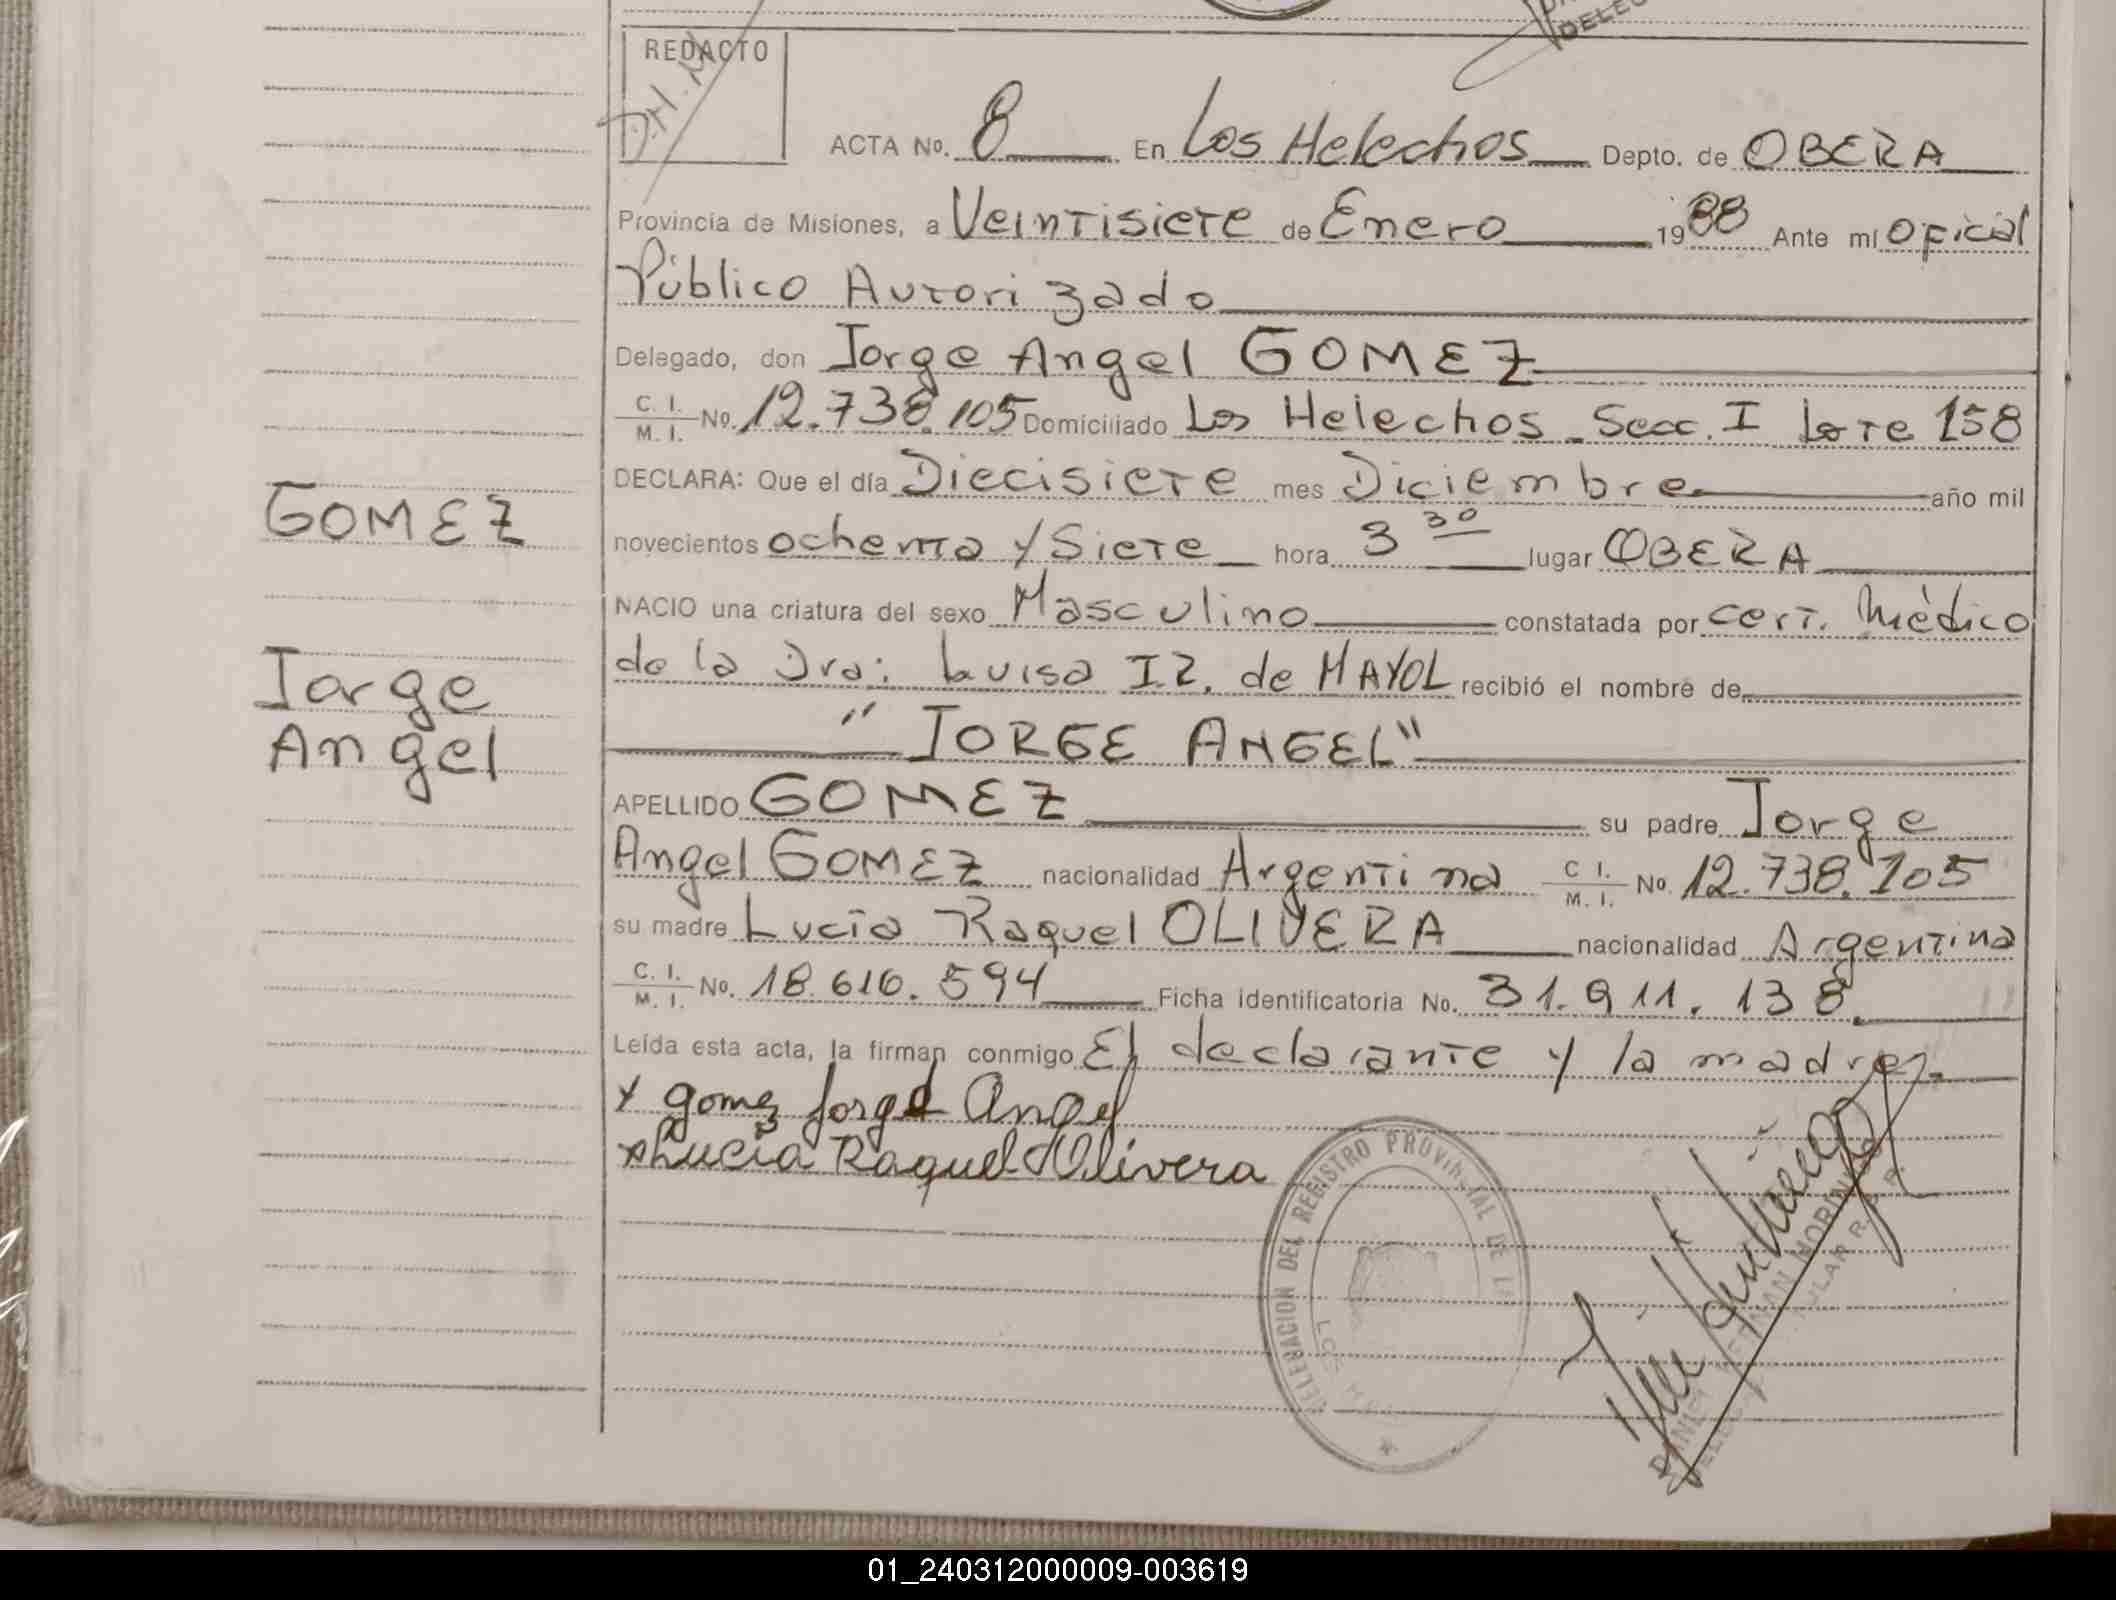 REDACTO
D.H.M
ACTA No. 8 En Los Helechos Depto. de OBERA
Provincia de Misiones, a Veintisiete de Enero 1988 Ante mí Oficial
Público Autorizado
Delegado, don Jorge Angel GOMEZ
C. I. / M. I. No. 12.738.105 Domiciliado Los Helechos - Secc. I Lote 158
DECLARA: Que el día Diecisiete mes Diciembre año mil
GOMEZ
novecientos ochenta y Siete hora 3 30 lugar OBERA
NACIO una criatura del sexo Masculino constatada por cert. Médico
de la Dra: Luisa I.Z. de MAYOL recibió el nombre de
Jorge
Angel
"JORGE ANGEL"
APELLIDO GOMEZ su padre Jorge
Angel GOMEZ nacionalidad Argentina C I. / M. I. No. 12.738.105
su madre Lucía Raquel OLIVERA nacionalidad Argentina
C. I. / M. I. No. 18.616.594 Ficha identificatoria No. 31.911.138.
Leída esta acta, la firman conmigo El declarante y la madre.
x gomez Jorge Angel
x Lucia Raquel Olivera
DELEGACION DEL REGISTRO PROVINCIAL DE L
LOS HE
HERNAN MORINIGO
TITULAR R. P.
01_240312000009-003619